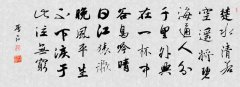 楚水清若
空遥將碧
海通人分
千里外興
在一杯中
谷鳥吟晴
日江猿嘯
晚風平生
不下淚于
此泣無窮